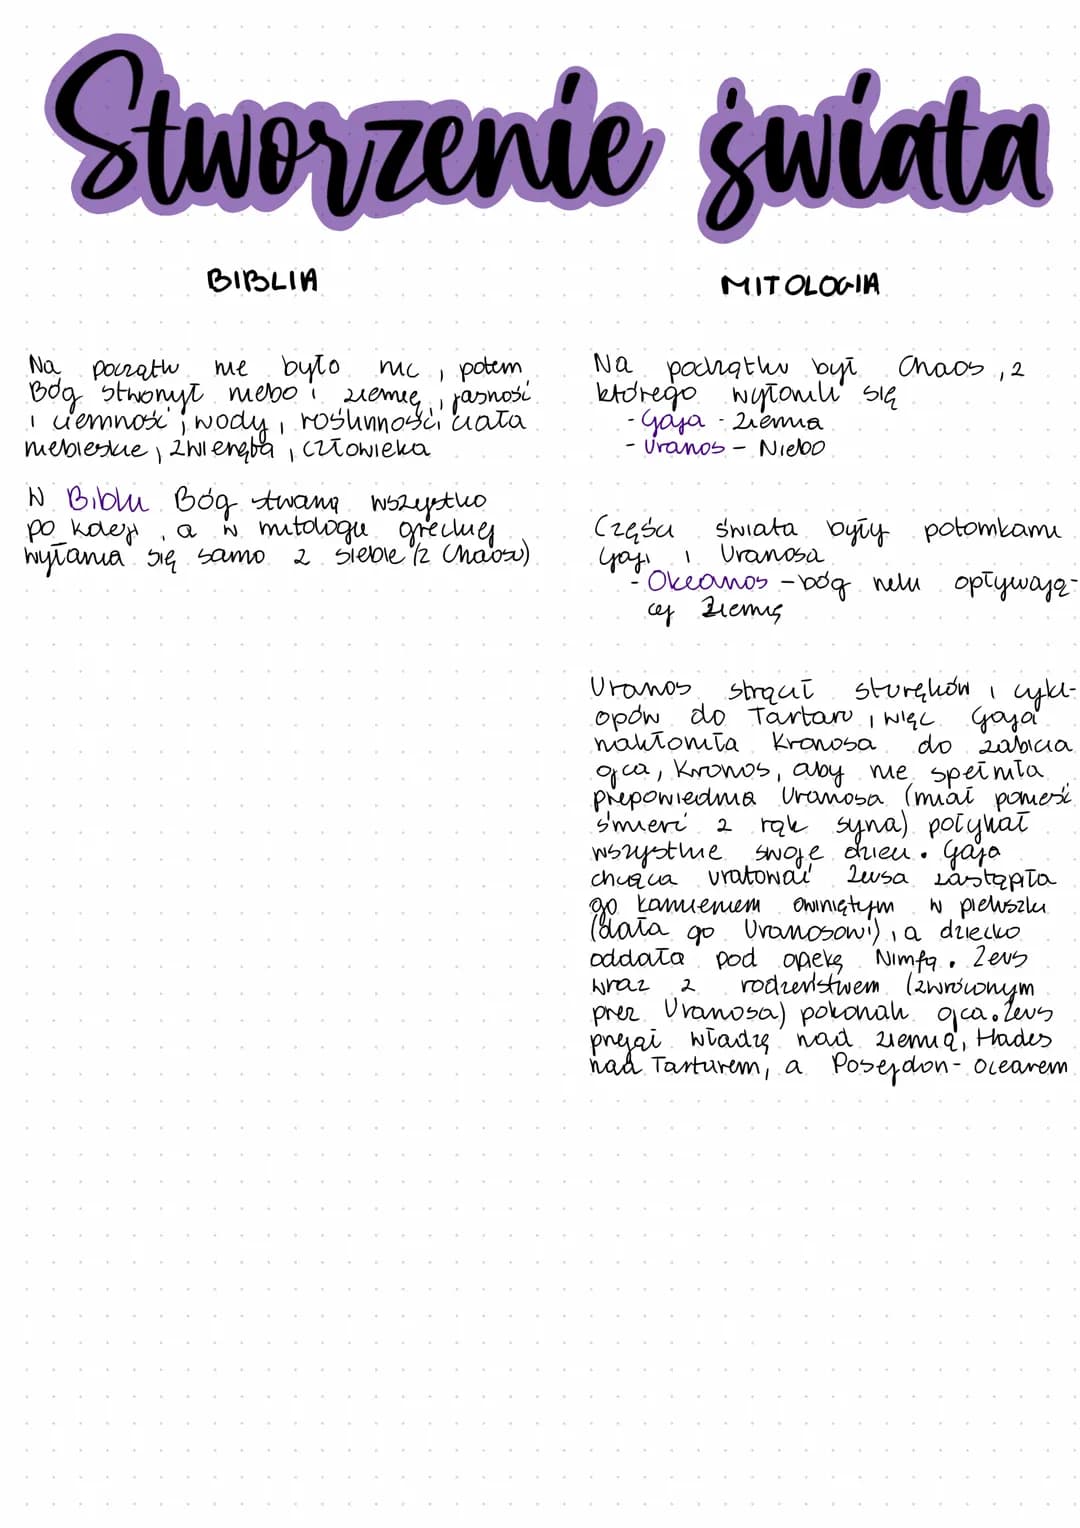 Stworzenie świata
BIBLIA
Na początku nie było nic, potem
Bóg stworzył niebo i ziemię, jasność
i ciemność, wody, roślinność, ciała
niebieskie, zwierzęta, człowieka
W Biblii Bóg tworzy wszystko
po kolei, a w mitologii greckiej
wyłania się samo z siebie (z Chaosu)
MITOLOGIA
Na początku był Chaos, z
którego wyłonili się
- Gaja - Ziemia
- Uranos - Niebo
Części świata były potomkami
Gaji i Uranosa
- Okeanos - bóg rzeki opływają-
cej Ziemię
Uranos strącił sturękich i cykl-
opów do Tartaru, więc Gaja
nakłoniła Kronosa do zabicia
ojca, Kronos, aby nie spełniła
przepowiednia Uranosa (miał ponieść
śmierć z rąk syna) połykał
wszystkie swoje dzieci. Gaja
chcąca uratować Zeusa zastąpiła
go kamieniem owiniętym w pieluszki
(dała go Uranosowi), a dziecko
oddała pod opiekę Nimfą. Zeus
wraz z rodzeństwem (zwróconym
przez Uranosa) pokonali ojca. Zeus
przejął władzę nad ziemią, Hades
nad Tarturem, a Posejdon - Ocearem